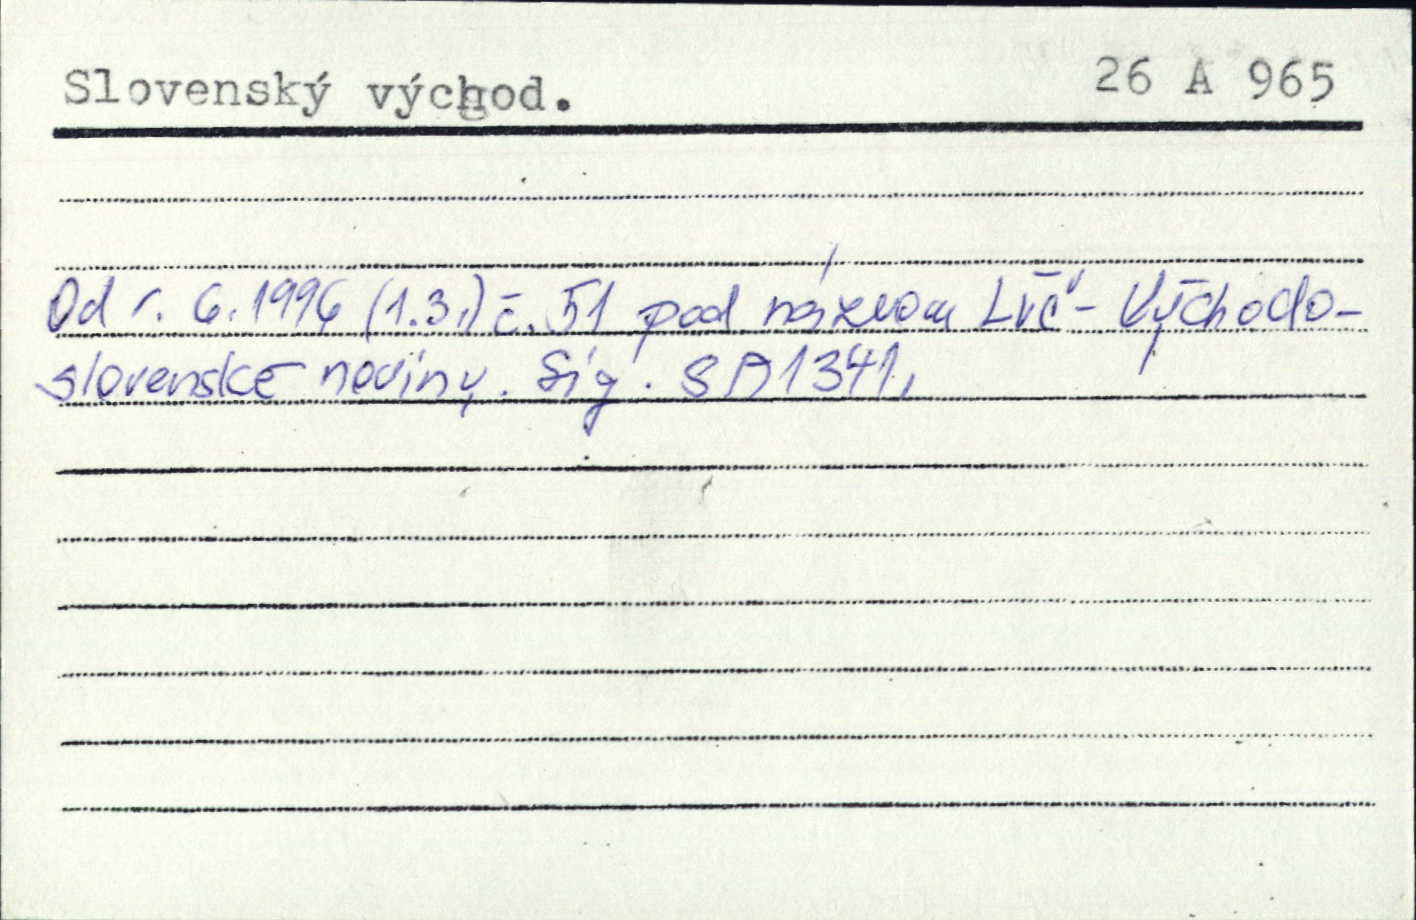 Slovenský východ. 26 A 965
Od r. 6.1996 (1.3.) č. 51 pod názvom Lúč - Východo-
slovenské noviny. Sig. SA1341,